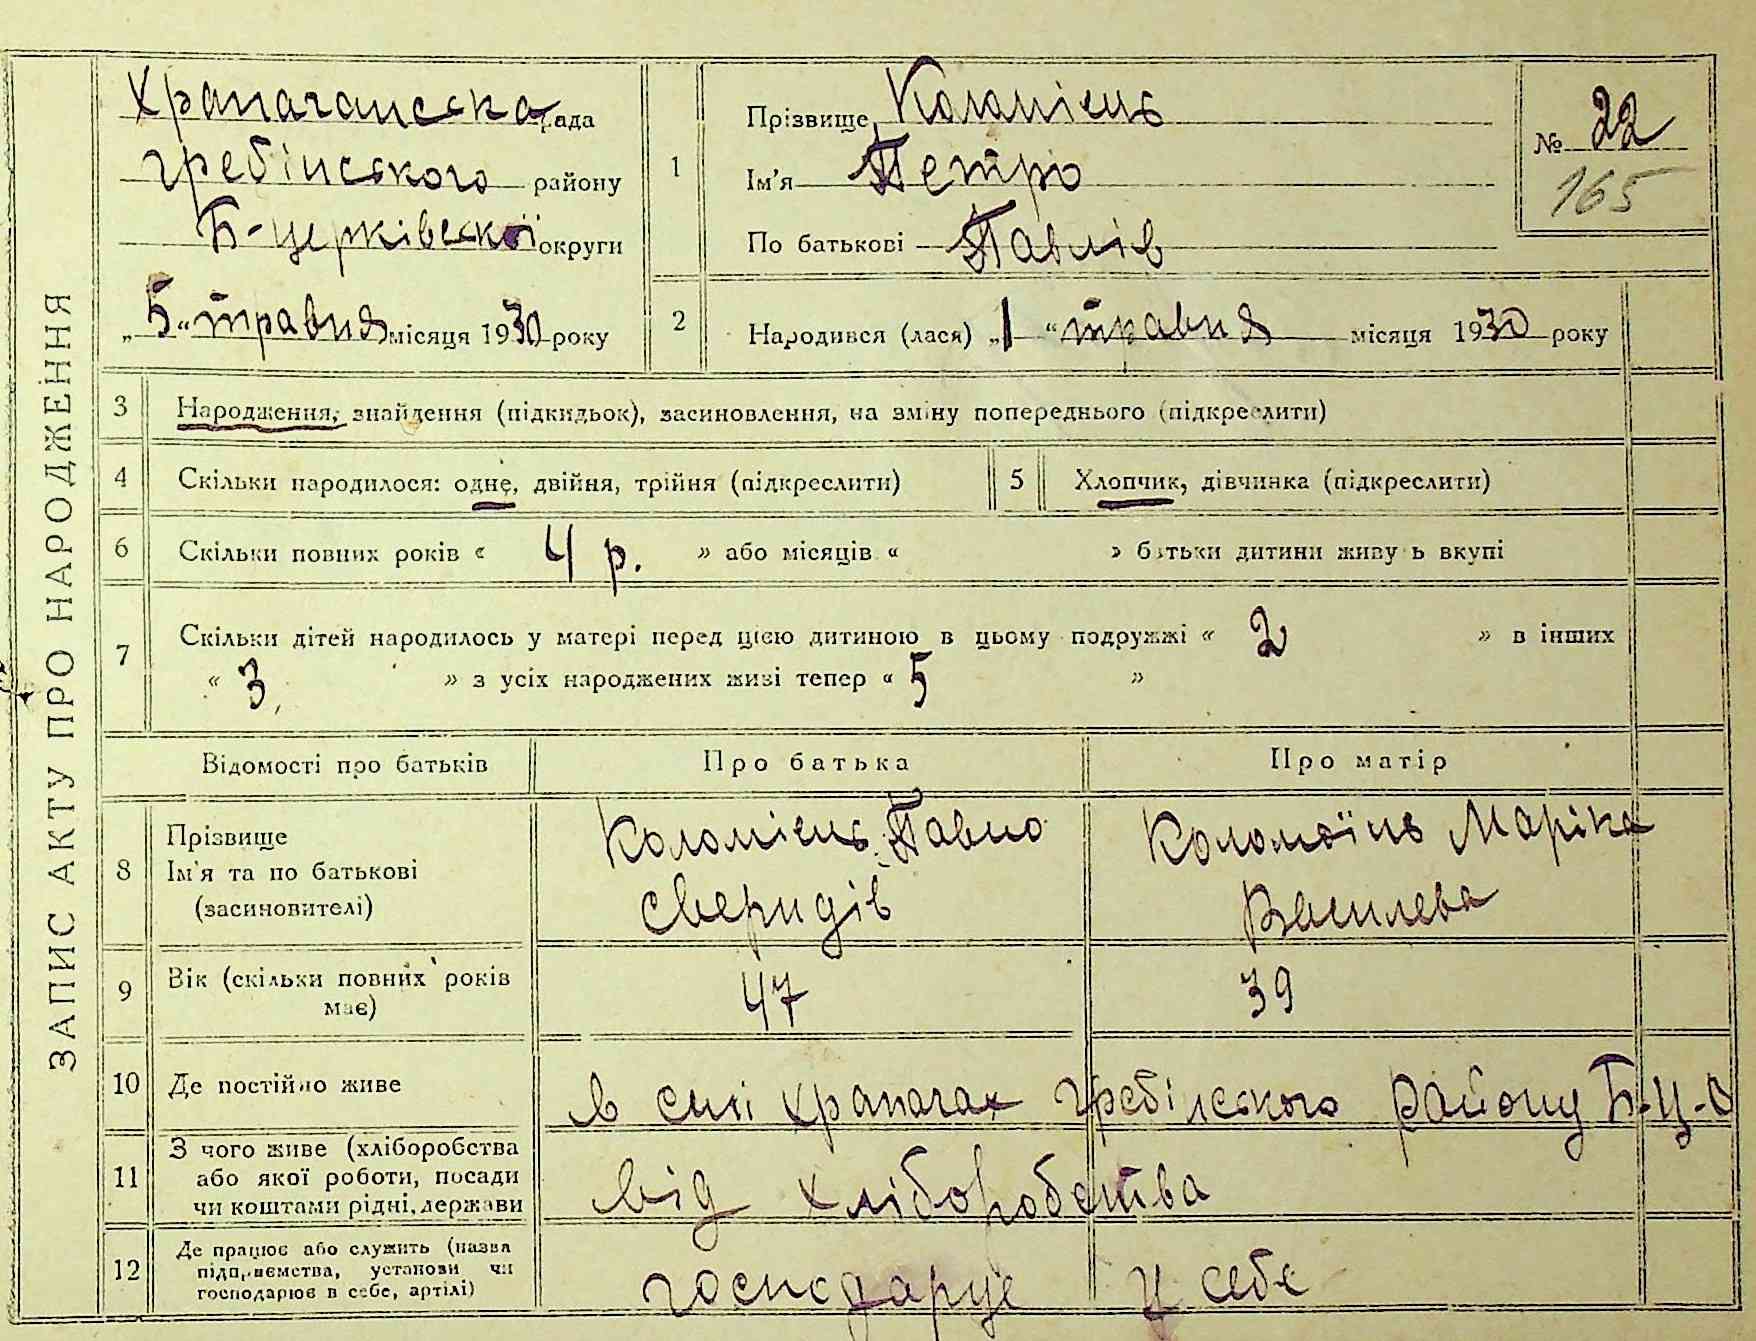 ЗАПИС АКТУ ПРО НАРОДЖЕННЯ
Храпачанська рада
гребінського району
Б-церківської округи
„5“ травня місяця 1930 року
1
Прізвище Коломієць
Ім'я Петро
По батькові Павлів
№ 22
165
2
Народився (лася) „1“ травня місяця 1930 року
3 Народження, знайдення (підкидьок), засиновлення, на зміну попереднього (підкреслити)
4 Скільки народилося: одне, двійня, трійня (підкреслити) 5 Хлопчик, дівчинка (підкреслити)
6 Скільки повних років « 4 р. » або місяців « » батьки дитини живуть вкупі
7 Скільки дітей народилось у матері перед цією дитиною в цьому подружжі « 2 » в інших
« 3 » з усіх народжених живі тепер « 5 »
Відомості про батьків Про батька Про матір
8 Прізвище
Ім'я та по батькові
(засиновителі)
Коломієць Павло
Сверидів
Коломоїць Маріка
Василева
9 Вік (скільки повних років
має)
47 39
10 Де постійно живе в силі храпачах гребінського району Б-Ц-О
11 З чого живе (хліборобства
або якої роботи, посади
чи коштами рідні, держави
від хліборобства
12 Де працює або служить (назва
підприємства, установи чи
господарює в себе, артілі)
господарує у себе